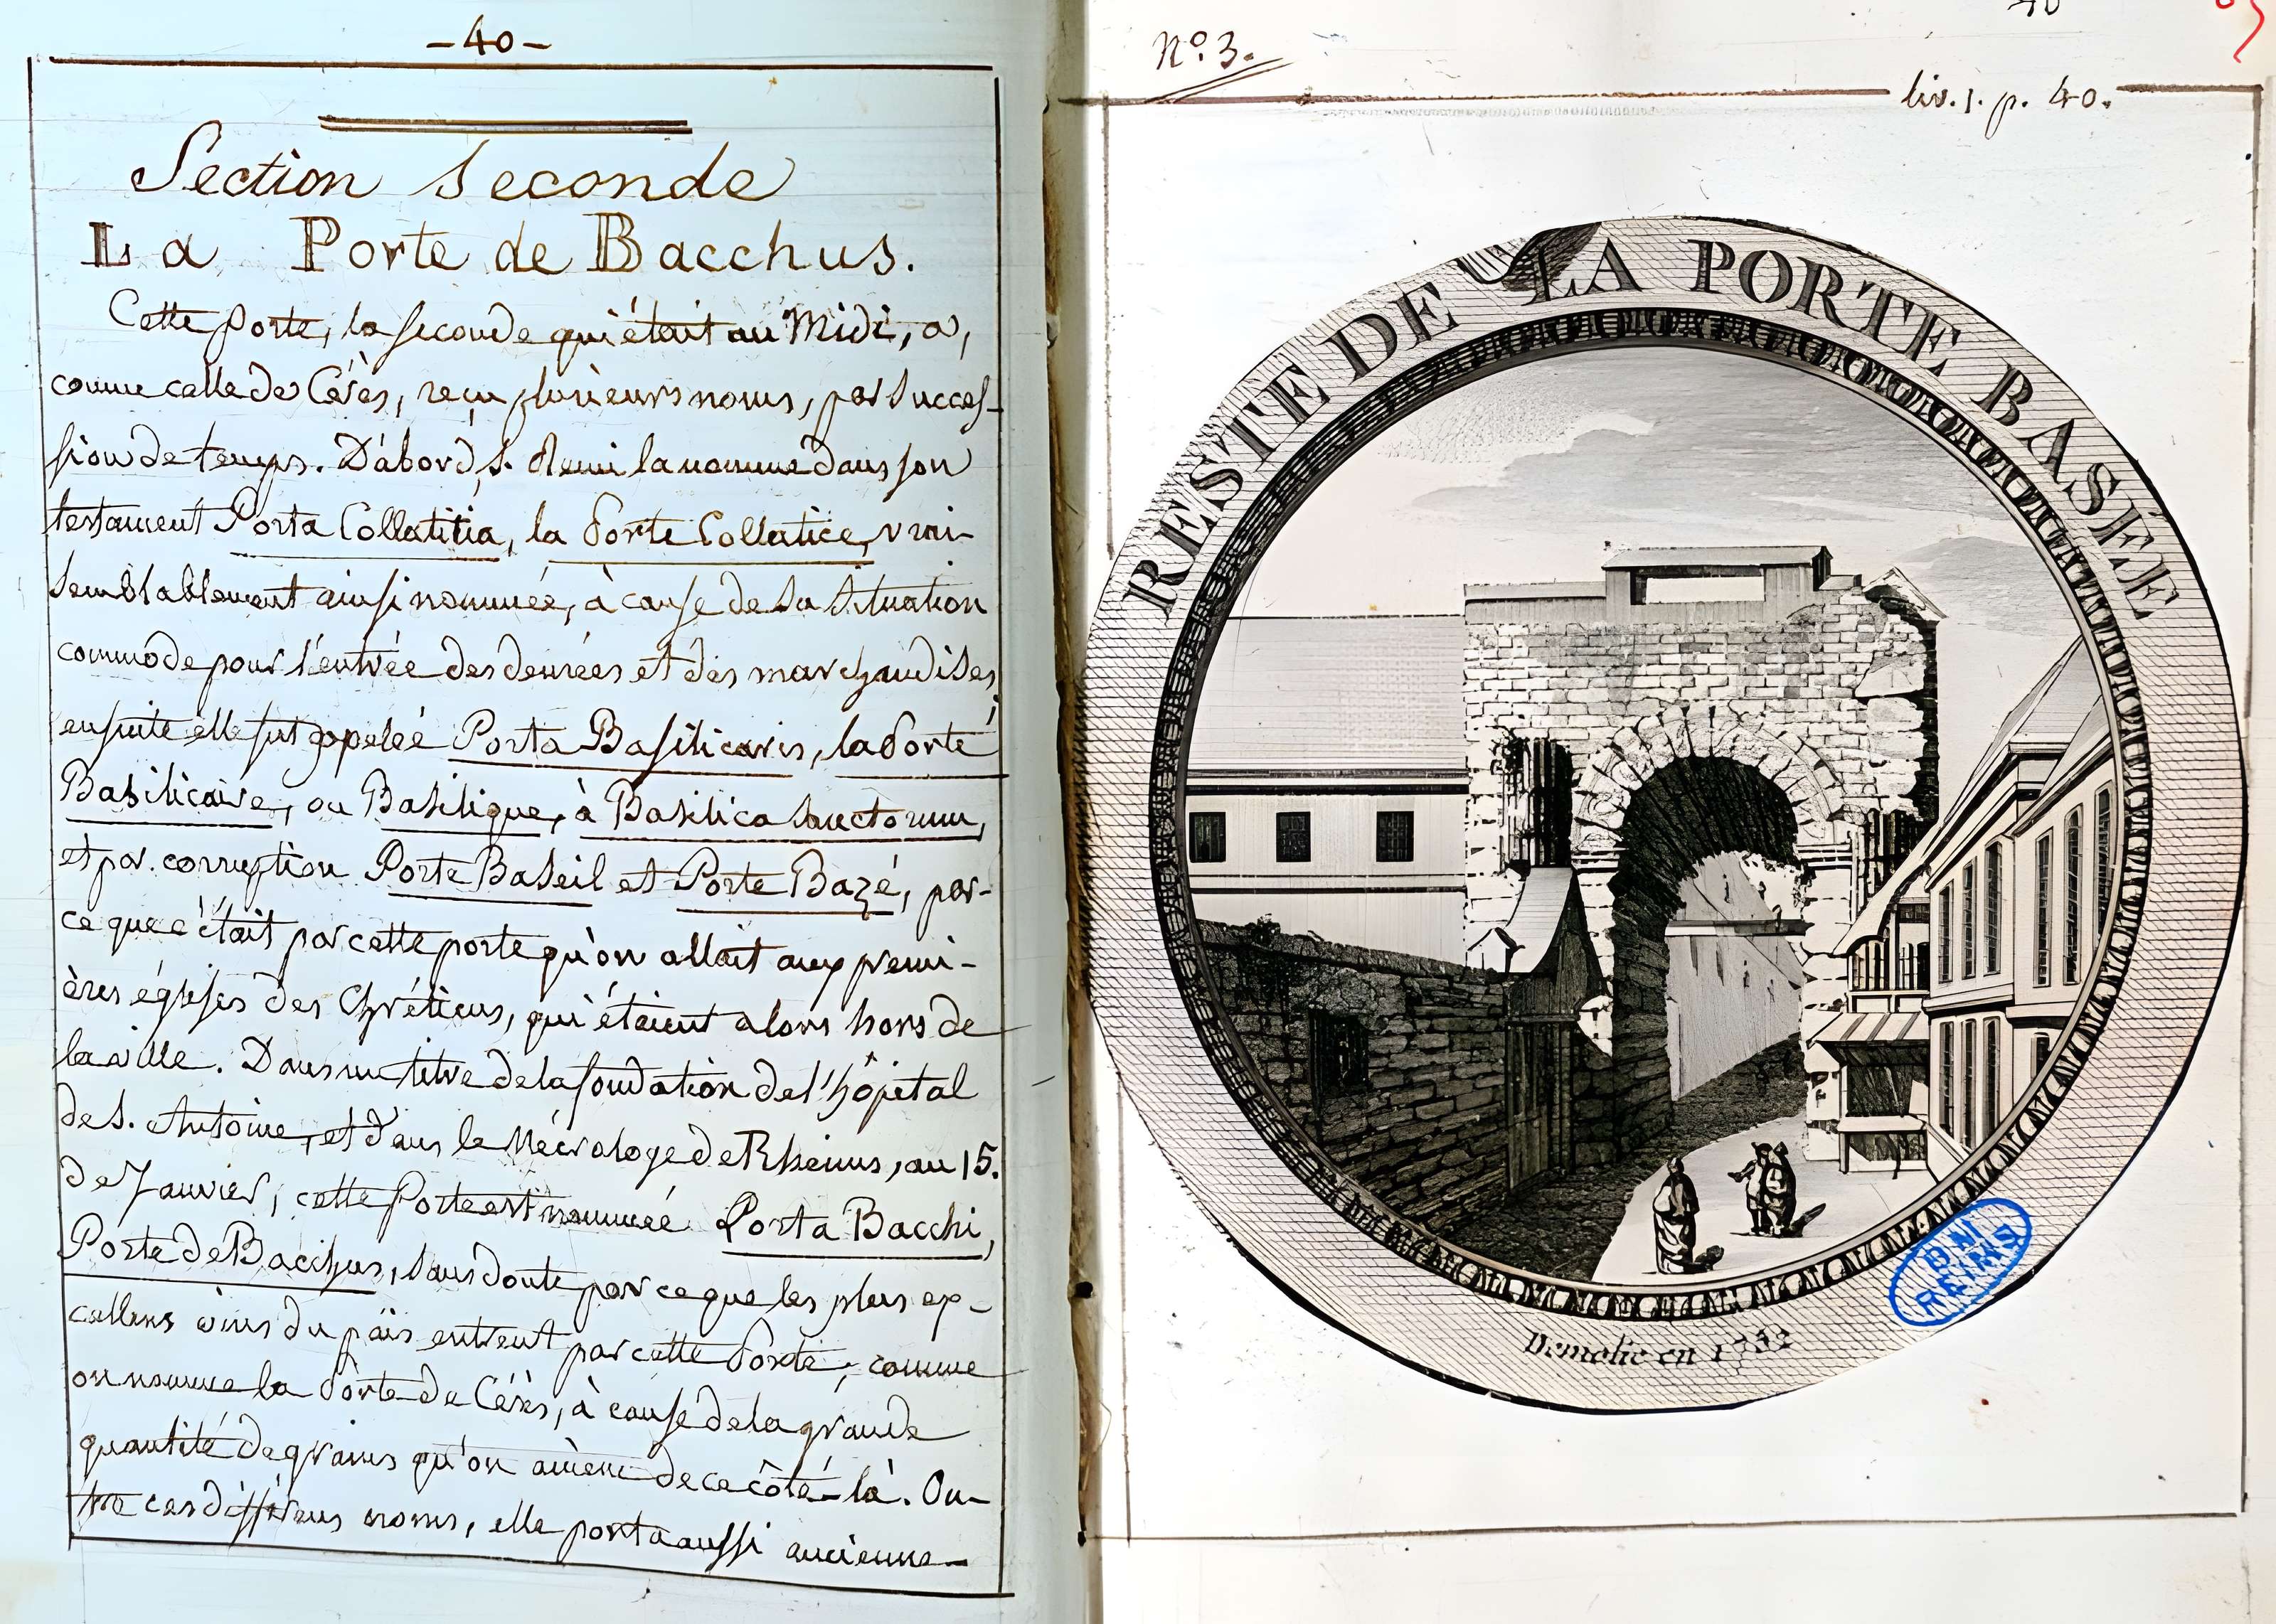 - 40 -
Section Seconde
La Porte de Bacchus.
Cette porte, la seconde qui était au Midi, a,
comme celle de Cérès, reçu plusieurs noms, par succes-
sion de temps. D'abord, S. Remi la nomme dans son
testament Porta Collatitia, la Porte Collatice, vrai-
semblablement ainsi nommée, à cause de sa situation
commode pour l'entrée des denrées et des marchandises,
ensuite elle fut appelée Porta Basilicaris, la Porte
Basilicaire, ou Basilique, à Basilica Sanctorum,
et par corruption Porte Baseil et Porte Bazé, par-
ce que c'était par cette porte qu'on allait aux premi-
ères églises des Chrétiens, qui étaient alors hors de
la ville. Dans un titre de la fondation de l'hôpital
de S. Antoine, et dans le Nécrologe de Rheims, au 15.
de Janvier, cette Porte est nommée Porta Bacchi,
Porte de Bacchus, sans doute parce que les plus ex-
cellens vins du païs entrent par cette Porte, comme
on nomme la Porte de Cérès, à cause de la grande
quantité de grains qu'on amène de ce côté-là. Ou-
tre ces différens noms, elle porta aussi ancienne-
N.º 3.
40
liv. 1. p. 40.
RESTE DE LA PORTE BASÉE
Demolie en 1752
BM
REIMS